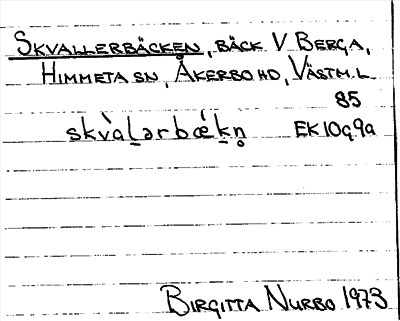 SKVALLERBÄCKEN, BÄCK V BERGA,
HIMMETA SN, ÅKERBO HD, VÄSTM. L.
85
skvàl̠ərbǽk̠n̥ EK10g9a
BIRGITTA NURBO 1973